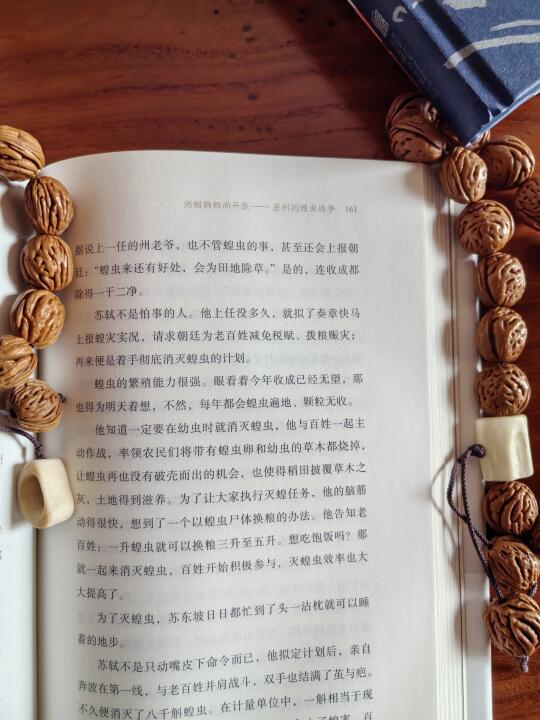 酒酣胸胆尚开张——密州的蝗虫战争 161
据说上一任的州老爷，也不管蝗虫的事，甚至还会上报朝
廷：“蝗虫来还有好处，会为田地除草。”是的，连收成都
除得一干二净。
苏轼不是怕事的人。他上任没多久，就拟了奏章快马
上报蝗灾实况，请求朝廷为老百姓减免税赋、拨粮赈灾；
再来便是着手彻底消灭蝗虫的计划。
蝗虫的繁殖能力很强。眼看着今年收成已经无望，那
也得为明天着想，不然，每年都会蝗虫遍地、颗粒无收。
他知道一定要在幼虫时就消灭蝗虫，他与百姓一起主
动作战，率领农民们将带有蝗虫卵和幼虫的草木都烧掉，
让蝗虫再也没有破壳而出的机会，也使得稻田披覆草木之
灰，土地得到滋养。为了让大家执行灭蝗任务，他的脑筋
动得很快，想到了一个以蝗虫尸体换粮的办法。他告知老
百姓：一升蝗虫就可以换粮三升至五升。想吃饱饭吗？那
就一起来消灭蝗虫，百姓开始积极参与，灭蝗虫效率也大
大提高了。
为了灭蝗虫，苏东坡日日都忙到了头一沾枕就可以睡
着的地步。
苏轼不是只动嘴皮下命令而已，他拟定计划后，亲自
奔波在第一线，与老百姓并肩战斗，双手也结满了茧与疤。
不久便消灭了八千斛蝗虫。在计量单位中，一斛相当于现